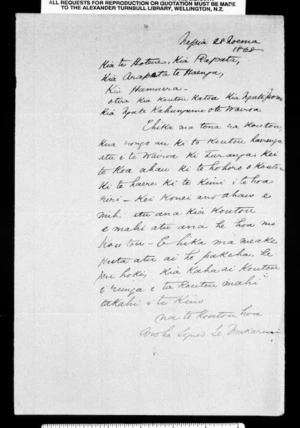 ALL REQUESTS FOR REPRODUCTION OR QUOTATION MUST BE MADE
TO THE ALEXANDER TURNBULL LIBRARY, WELLINGTON, N.Z.
Nepia 28
1868
Kia te Hotene, Kia Rapata,
Kia Arapata te
Kia Hamuera
otira kia koutou katoa kia Ngati
kia Ngati Kahungunu o te Wairoa
E hika ma tena ra koutou,
kua rongo au ki to koutou haerenga
atu i te Wairoa ki Turanga kei
te koa ahau ki te hohoro o koutou
ki te haere ki te kimi i te hoa
riri - Kei konei ano ahau e
mihi atu ana kia koutou
e mahi atu ana he hoa no
koutou - E hika ma meake
puta atu ai he pakeha he
hoki, kia kaha ai koutou
i runga i ta koutou mahi
takahi i te kino
na to koutou hoa
aroha Signed Te